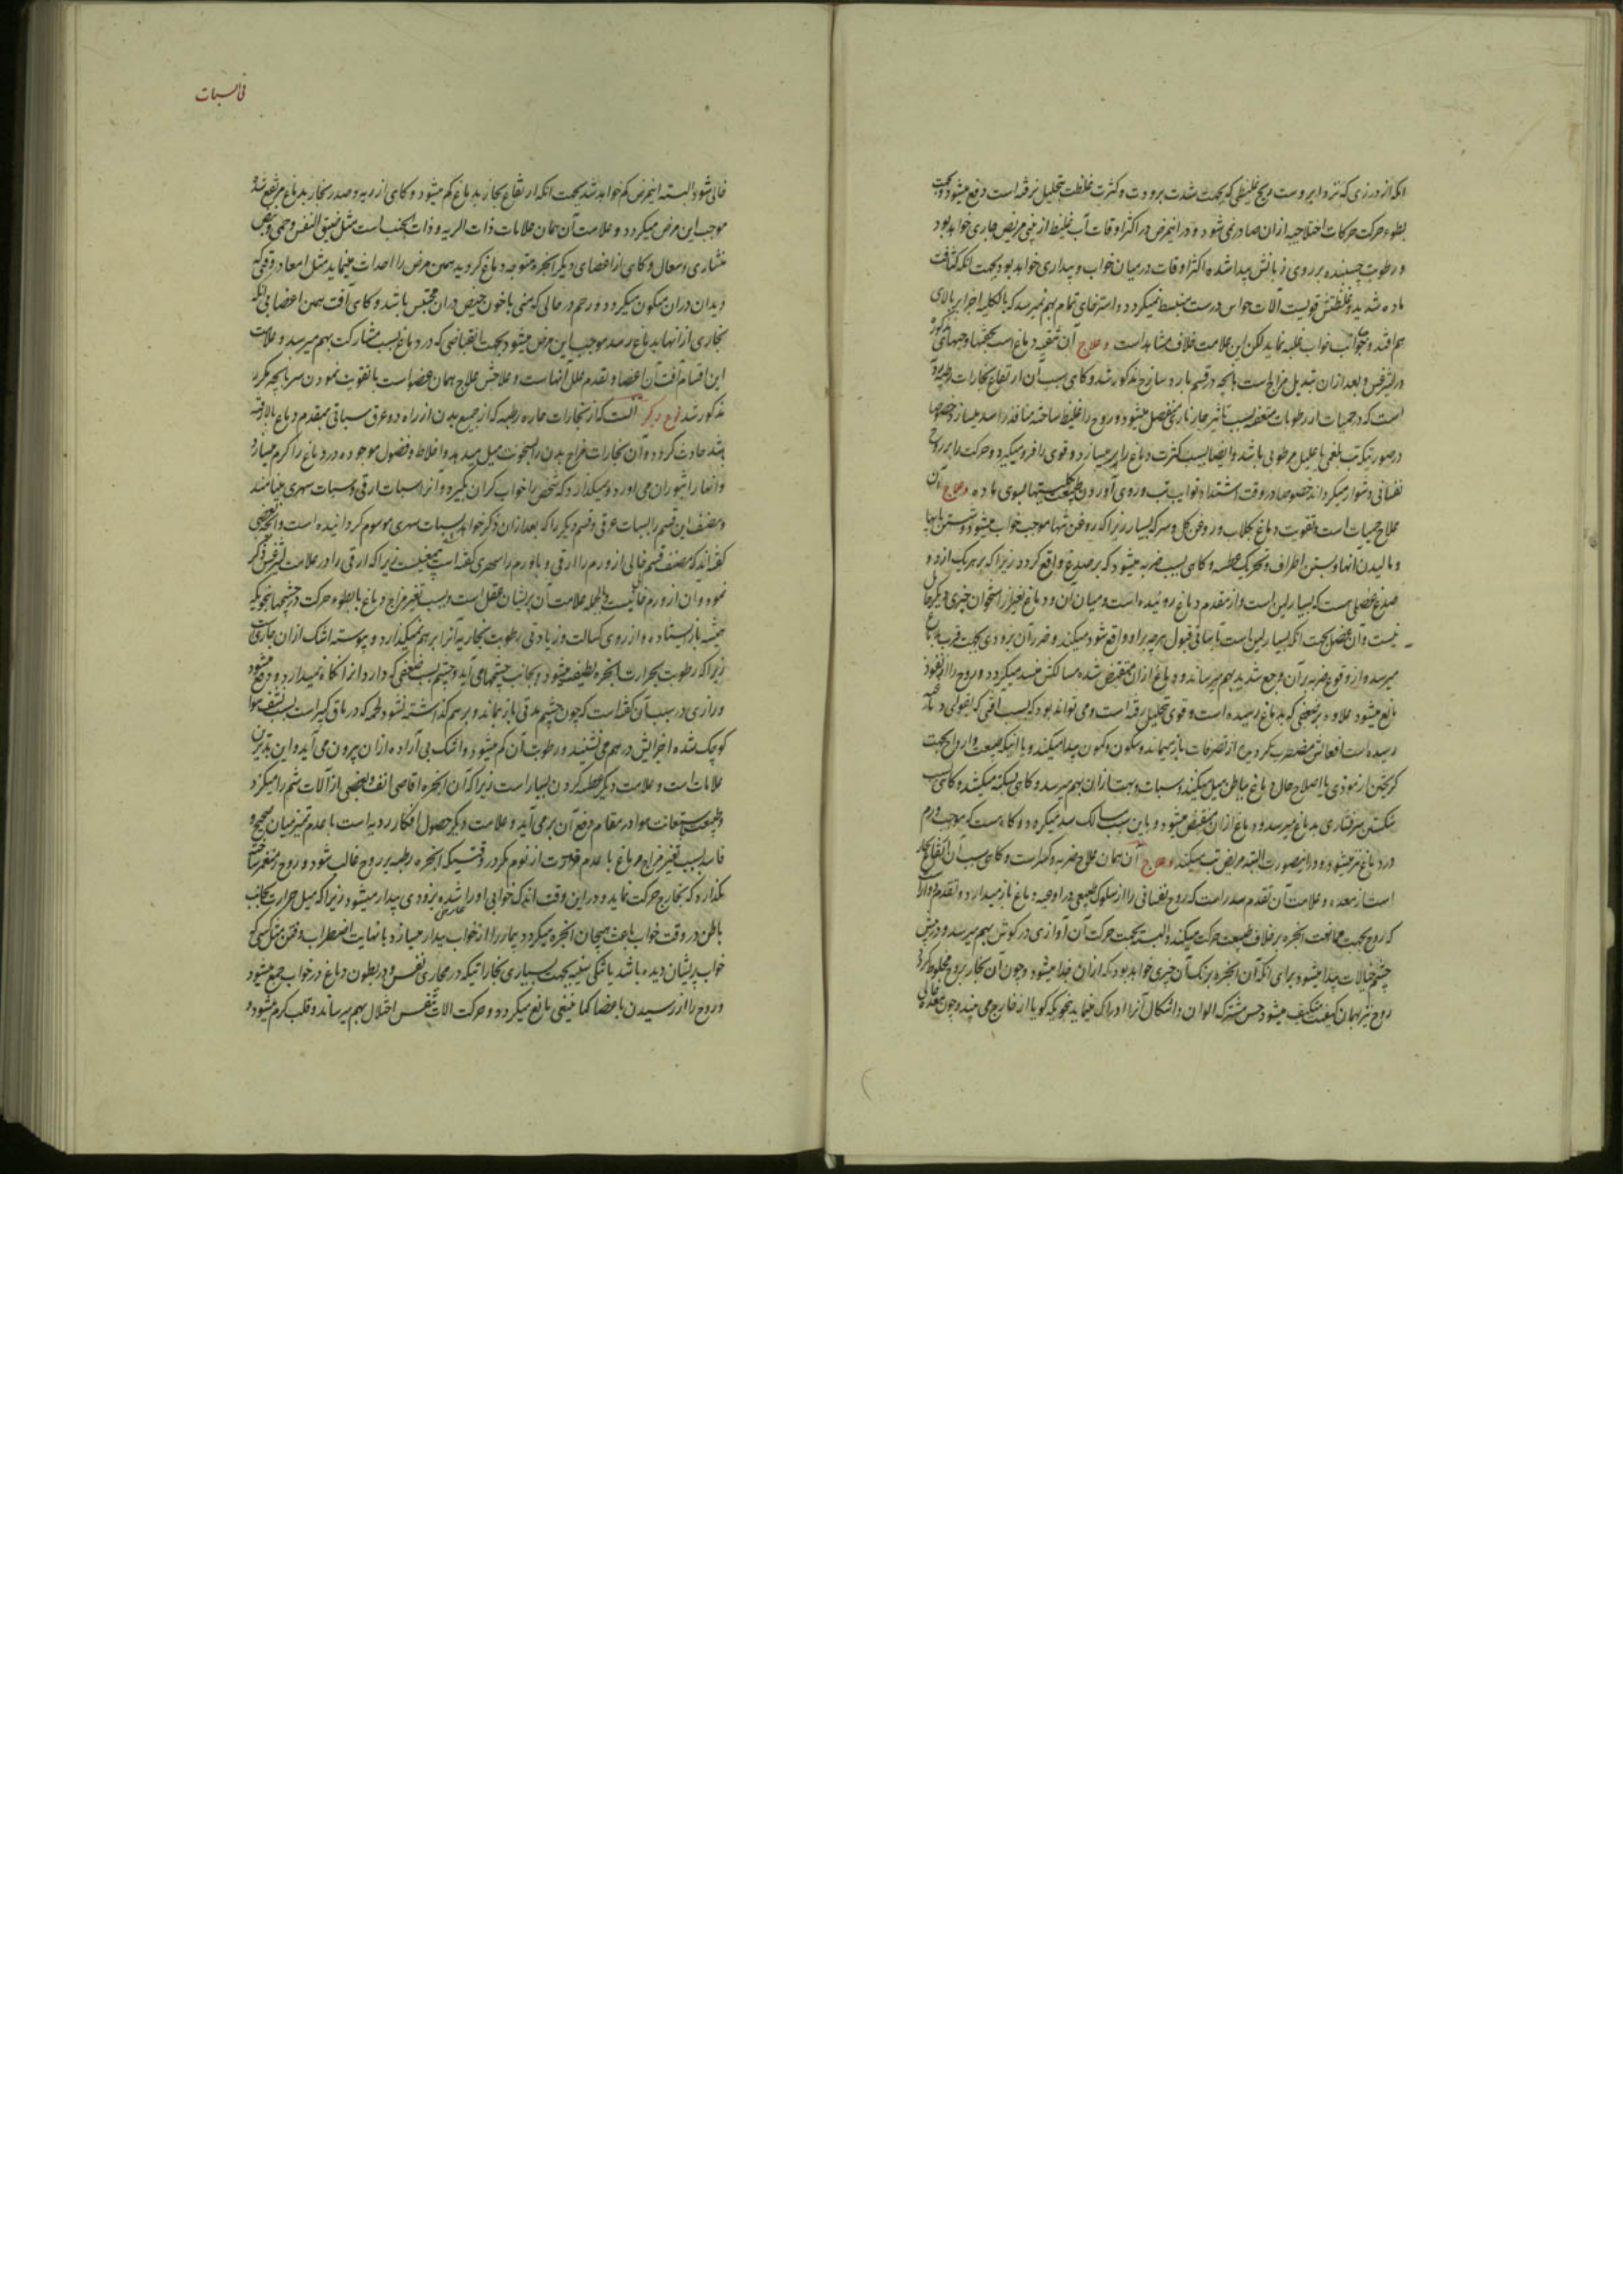 آنکه از درزی که نزد ابروست ریح غلیظی که بجهت شدت برودت و کثرت غلظت تحلیل نرفته است دفع میشود و بجهت
بطوء حرکت حرکات اختلاجیه ازان صادر نمی شود و در اینمرض در اکثر اوقات آب غلیظ از بینی مریض جاری خواهد بود
و رطوبت چسبنده بر روی زبانش پیدا شده اکثر اوقات در میان خواب و بیداری خواهد بود بجهت آنکه کثافت
ماده شدید و غلظتش قویست آلات حواس درست منبسط نمیگردد و استرخای تمام بهم نمیرسد که بالکلیه اجزا بر بالای
هم افتد و خواب غلبه نماید لکن این علامت خلاف مشاهد است و علاج آن تنقیه دماغ است بحقنها و حبهای مذکوره
در لیثرغس و بعد ازان تبدیل مزاج است بآنچه در قسم بارد ساذج مذکور شد و کاهی سبب آن ارتفاع بخارات رطبه
است که در حمیات از رطوبات متعفنه بسبب تاثیر حار ناری منفصل میشود و روح را غلیظ ساخته منافذ را سد میسازد خصوصا
در صورتیکه تب بلغمی یا علیل مرطوبی باشد و ایضا بسبب کثرت دماغ را پر میسازد و قوی را فرو میگیرد و حرکت را بر روح
نفسانی دشوار میگرداند خصوصا در وقت اشتداد نوایب تب و روی آوردن طبیعت بکلیتها بسوی ماده و علاج آن
علاج حمیات است و تقویت دماغ بکلاب و روغن کل و سرکه بسیار زیرا که روغن تنها موجب خواب میشود و شستن پایها
و مالیدن آنها و بستن اطراف و تحریک عطسه و کاهی بسبب ضربه میشود که بر صدغ واقع کردد زیرا که بر هر یک از دو
صدغ عضلی هست که بسیار لین است و از مقدم دماغ روئیده است و میان آن و دماغ بغیر از استخوان چیزی دیگر حایل
نیست و آن عضل بجهت آنکه بسیار لین است تاب قبول هرچه بر او واقع شود میکند و ضرر آن بزودی بجهت قرب بدماغ
میرسد و از وقوع ضربه بر آن وجع شدید بهم میرساند و دماغ ازان منقبض شده مسالکش منسد میگردد و روح را از نفوذ
مانع میشود علاوه بر ضعفی که بدماغ رسیده است و قوی تحلیل رفته است و می تواند بود که بسبب آفتی که بقوی دماغ
رسیده است افعالش مضطرب گردیده از تصرفات باز میماند و سکون و کمون پیدا میکند و یا آنیکه طبیعت و ارواح بجهت
کریختن از موذی یا اصلاح حال دماغ بباطن میل میکنند و سبات و بهت ازان بهم میرسد و کاهی بسکته میکشد و کاهی بسبب
شکستن سر فشاری بدماغ میرسد و دماغ ازان منقبض میشود و باین سبب مسالک سد میگردد و گاه هست که موجب ورم
در دماغ نیز میشود و در اینصورت البته مریض تب میکند و علاج آن همان علاج ضربه و کسر است و کاهی سبب آن ارتفاع بخار
است از معده و علامت آن تقدم سدر است که روح نفسانی را از سلوک طبیعی در اوعیه دماغ باز میدارد و تقدم دوار است
که روح بجهت ممانعت ابخره بر خلاف طبیعت حرکت میکند و البته بجهت حرکت آن آوازی در کوش بهم میرسد و در پیش
چشم خیالات پیدا میشود برای آنکه آن ابخره برنک آن چیزی خواهد بود که ازان جدا میشود و چون آن بخار بروح مخلوط کردد
روح نیز بهمان کیفیت متکیف میشود و حس مشترک الوان و اشکال آنرا ادراک مینماید بنحویکه کویا از خارج می بیند و چون معده
فی السبات
خالی شود البته اینمرض کم خواهد شد بجهت آنکه ارتفاع بخار بدماغ کم میشود و کاهی از ریه و صدر بخار بدماغ مرتفع شده
موجب این مرض میگردد و علامت آن همان علامات ذات الریه و ذات الجنب است مثل ضیق النفس و حمی و نبض
منشاری و سعال و کاهی از اعضای دیگر ابخره متوجه دماغ گردیده همین مرض را احداث مینماید مثل امعا در وقتی که
دیدان دران متکون میگردد و رحم در حالی که منی یا خون حیض دران محتبس باشد و کاهی آفت بهمن اعضا بی آنکه
بخاری از آنها بدماغ رسد موجب این مرض میشود بجهت انقباضی که در دماغ بسبب مشارکت بهم میرسد و علامت
این اقسام آفت آن اعضا و تقدم علل آنهاست و علاجش علاج همان عضو است با تقویت نمودن سر بآنچه مکرر
مذکور شد نوع دیگر آنست که از بخارات حاره رطبه که از جمیع بدن از راه دو عرق سباتی بمقدم دماغ بالا رفته
باشد حادث کردد و آن بخارات مزاج بدن را بسخونت میل میدهد و اخلاط و فضول موجوده در دماغ را کرم میسازد
و آنها را بثوران می آورد و نمیگذارد که شخص را خواب کران بگیرد و آنرا سبات ارقی و سبات سهری مینامند
و مصنف این قسم را بسبات عرقی و قسم دیگر را که بعد ازان ذکر خواهد شد بسبات سهری موسوم گردانیده است و آنچه بعضی
گفته اند که مصنف قسم خالی از ورم را ارقی و با ورم را سهری گفته است بیمعنیست زیرا که ارقی را در علامت لیثرغس ذکر
نموده و آن از ورم خالی نیست و بالجمله علامت آن پریشانی عقل است و بسبب تغیر مزاج دماغ با بطوء حرکت و چشمها بنحویکه
همیشه باز ایستاده و از روی کسالت و زیادتی رطوبت بخاریه آنرا بر هم نمیگذارد و پیوسته اشک ازان جاریست
زیرا که رطوبت بحرارت ابخره لطیف میشود و بجانب چشمها می آید و چشم بسبب ضعفی که دارد آنرا نکاه نمیدارد و دفع میشود
و رازی در سبب آن گفته است که چون چشم مدتی باز بماند و بر هم گذاشته نشود لحمه که در ماق کبیر است بسبب نشف هوا
کوچک شده اجزایش در هم می نشیند و رطوبت آن کم میشود و اشک بی آراده ازان بیرون می آید و این بدترین
علامات است و علامت دیگر عطسه کردن بسیار است زیرا که آن ابخره اقاصی انف و بعضی از آلات شم را میگزد
و طبیعت باستعانت هوا در مقام دفع آن بر می آید و علامت دیگر حصول افکار ردیه است با عدم تمیز میان صحیح و
فاسد بسبب تغیر مزاج دماغ با عدم افاقت از نوم مگر در وقتیکه ابخره رطبه بر روح غالب شود و روح را منغمر ساخته
نگذارد که بخارج حرکت نماید و در این وقت اندک خوابی او را شده بزودی بیدار میشود زیرا که میل حرارت بجانب
باطن در وقت خواب باعث هیجان ابخره میگردد و بیمار را از خواب بیدار میسازد با نهایت اضطراب و خفتن مثل کسی که
خواب پریشان دیده باشد یا تنگی سینه بجهت بسیاری بخاراتیکه در مجاری نفس و در بطون دماغ در خواب جمع میشود
و روح را از رسیدن باعضا کما ینبغی مانع میگردد و حرکت آلات تنفس اختلال بهم میرساند و قلب کرم میشود و